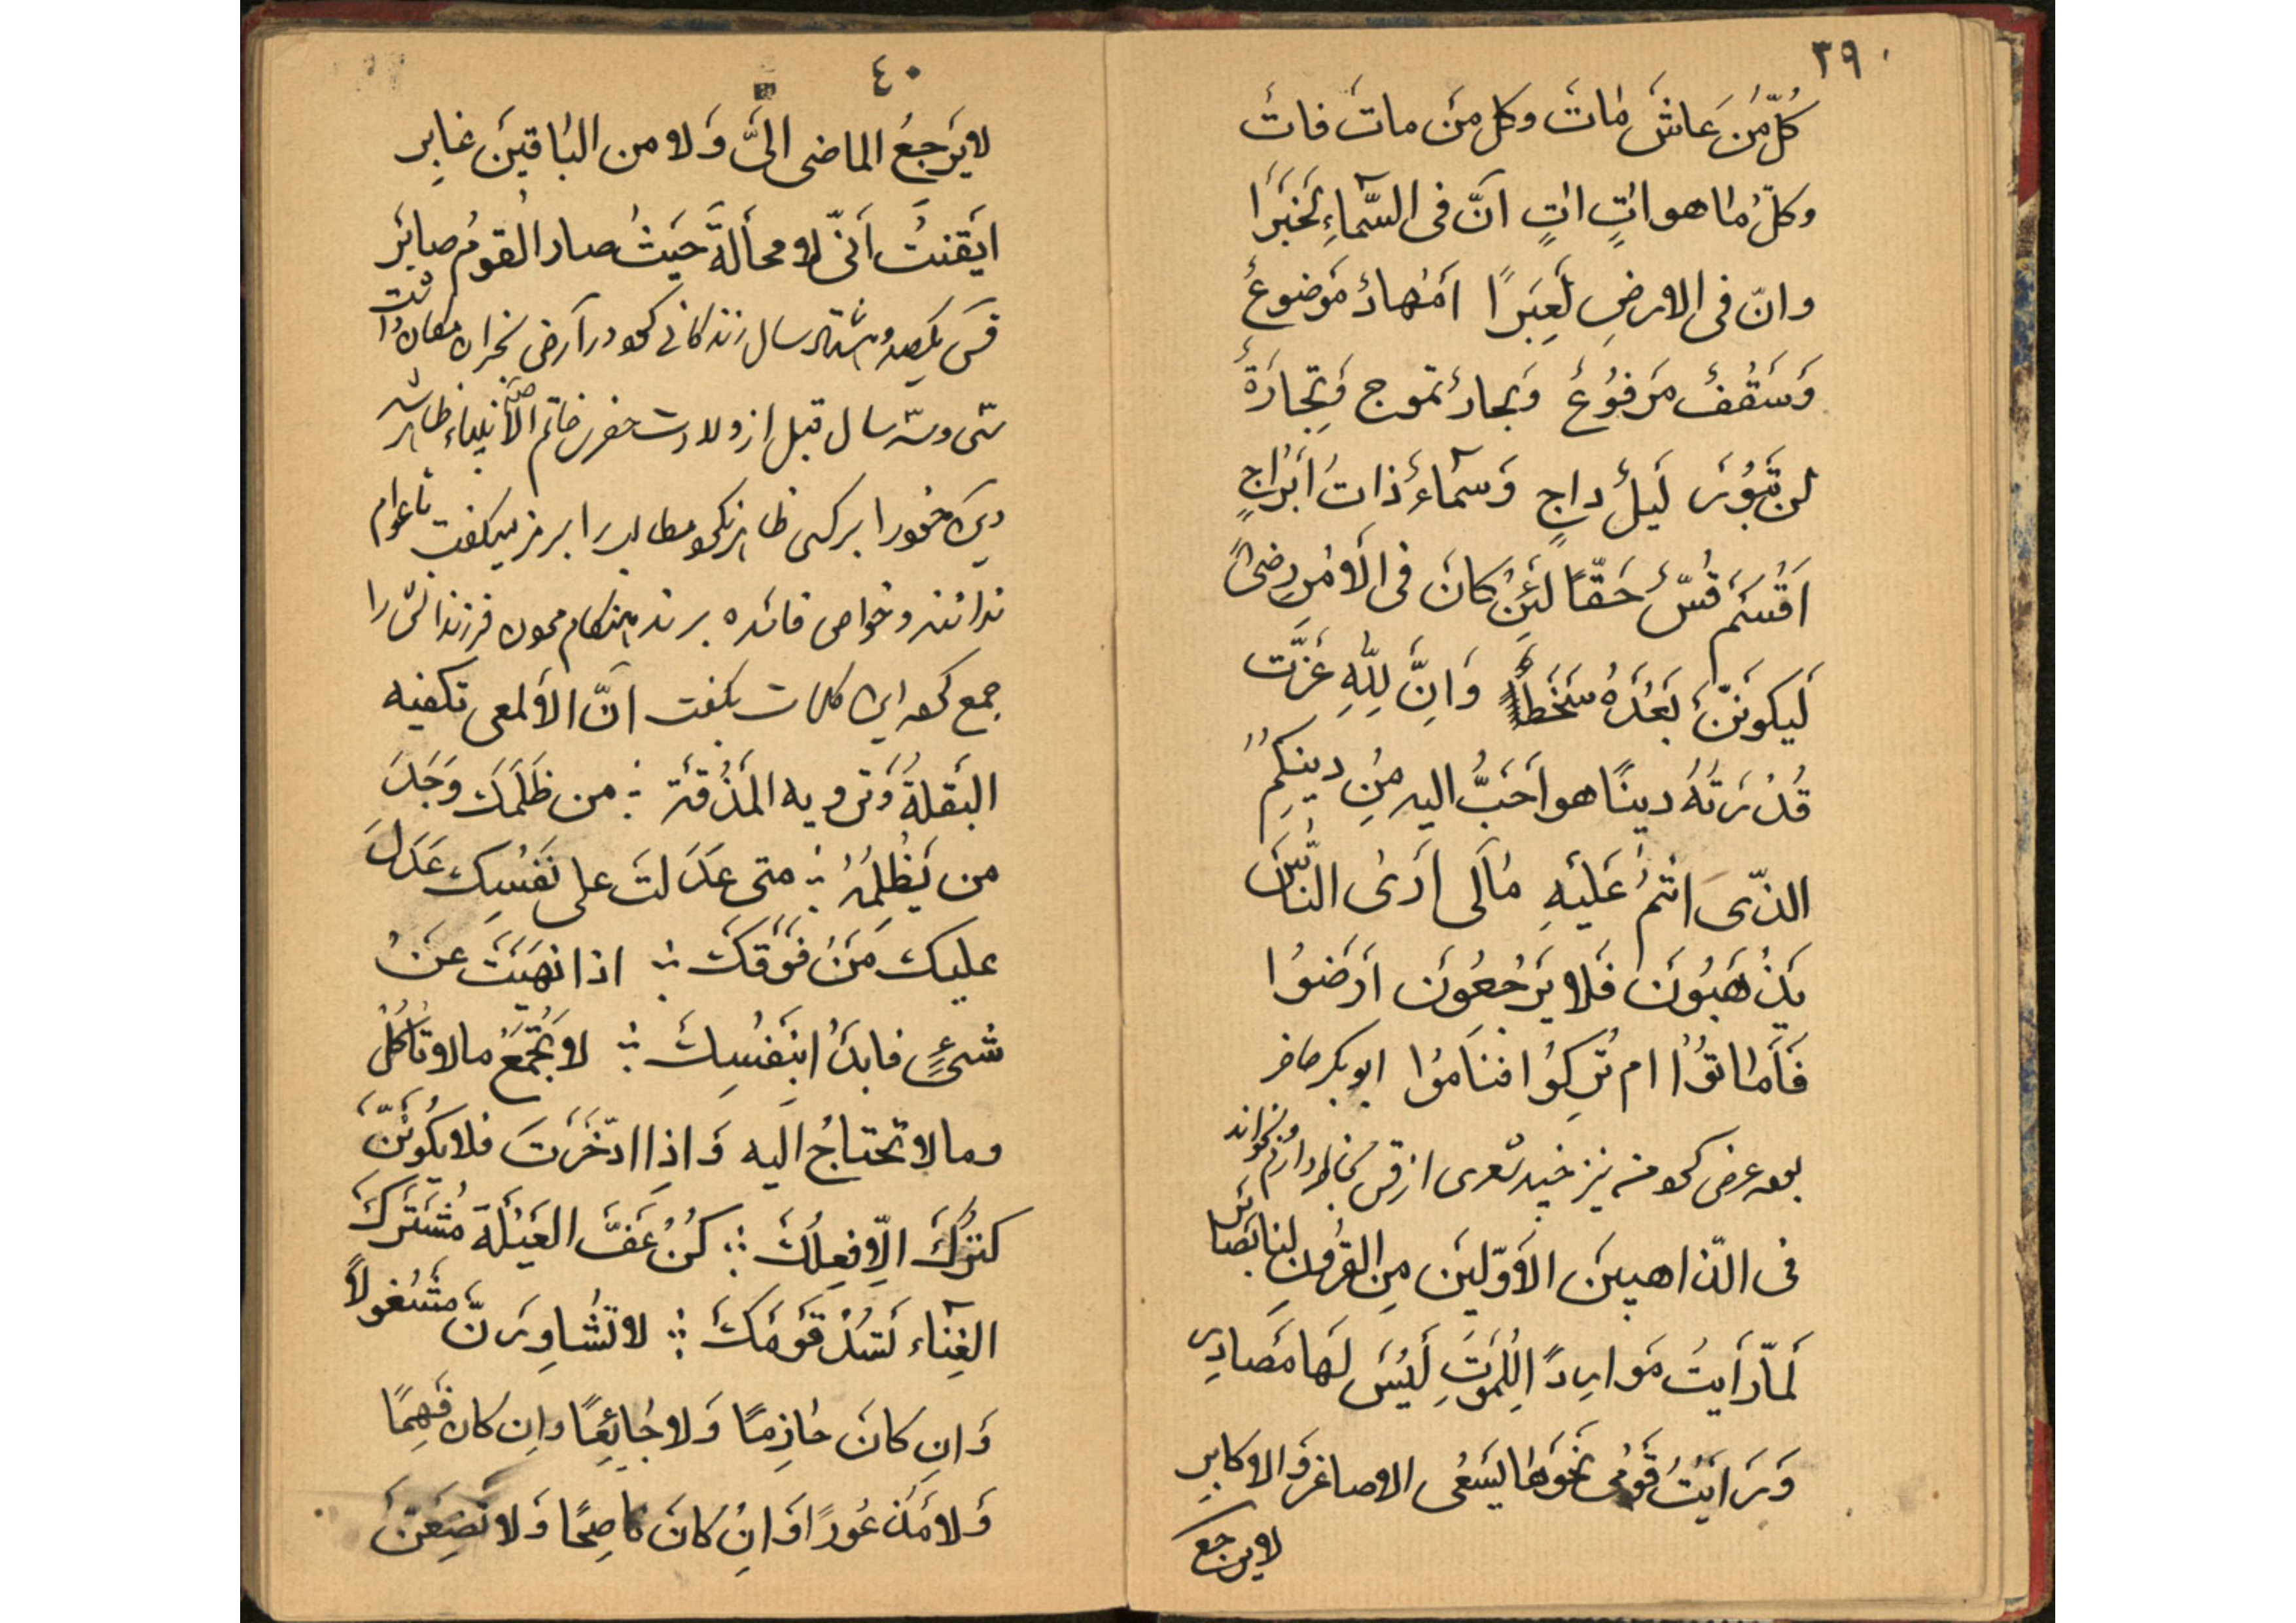 ٣٩
كُلّ مَنْ عَاشَ مٰاتَ وكل مَن ماتَ فاتَ
وكلّ مٰا هو اتٍ اتٍ انَّ فى السَّمآءِ لَخَبَرًا
وانّ فى الارضِ لَعِبَرًا مهادٌ مَوضوعٌ
وَسَقْفٌ مَرفُوعٌ وَبحارٌ تموج وَتِجارَةٌ
لن تَبُورَ لَيلٌ داجٍ وَسَمآءٌ ذاتُ اَبْراجٍ
اَقْسَمَ قُسٌّ حَقّاً لَئِن كانَ فى الاَمْرِ رِضىً
لَيكونَنَّ بَعْدَهُ سَخَطاً وَاِنَّ لِلّهِ عَزَّت
قُدْرَتُهُ دينًا هو اَحَبُّ اليه مِن دينِكُمْ
الذّى انتمْ عَليَهِ مٰالى اَرَىٰ النّاسَ
يَذْهَبُونَ فَلا يَرْجِعُونَ اَرَضُوا
فَاَقٰامُوا ام تُرِكُوا فَنٰامُوا ابو بكر حاضر
بوده عرض كرد من نيز خيد شعرى از قس بخاطر دارم بخواند
فى الذّاهبينَ الاَوّلينَ مِنَ القرُونِ لنا بَصائر
لَمّا رَاَيتُ مَوارِدً اللِمَوتِ لَيْسَ لَها مَصادِر
وَرَاَيْتُ قَوْمى نَحْوَهٰا يَسْعٰى الاصاغرَ وَالاكابِر
لايرجع
٤٠
لايَرجِعُ الماضى الىَّ وَلا من البٰاقينَ غابِر
ايَقنتُ اَنّى لا محالَةَ حَيثُ صار القومُ صايَر
قس يكصد و هشتاد سال زندكانى كرد در ارض نجران مكان داشت
سى و سه سال قبل از ولادت حضرت خاتم الأنبياء ظاهر شد
دين خود را بر كسى ظاهر نكرد مطالب را برمز ميكفت تا عوام
ندانند و خواص فائده برند هنكام مردن فرزندانش را
جمع كرده اين كلمات بكفت انّ الاَلمعى تكفيه
البَقلةُ وَترويه المَذْقَة ؛ من ظَلَمَكَ وَجَدَ
من يَظْلِمُهُ ؛ متى عَدَلتَ على نَفْسِكَ عَدَلَ
عليكَ مَنْ فَوْقَكَ ؛ اذا نَهَيْتَ عَنْ
شَىءٍ فابدَأ ابِنَفْسِكَ ؛ لا تَجْمَعْ مالا تَأكُلُ
ومالا تحتاجُ اليه وَاذِا ادّخَرتَ فلا يكُونَنَّ
كنزُكَ الاّ فِعلُكَ ؛ كُنْ عَفَّ العَيْلَةَ مُشْتَرَكَ
الغِنآء تَسُدْ قَوْمَكَ ؛ لا تُشٰاوِرَنَّ مَشْغولاً
وَاِن كانَ حٰازِمًا وَلا جٰائِعًا وان كان فَهِمًا
وَلا مَذعُورًا وَانِ كانَ نٰاصِحًا وَلا تَضَعَنَّ